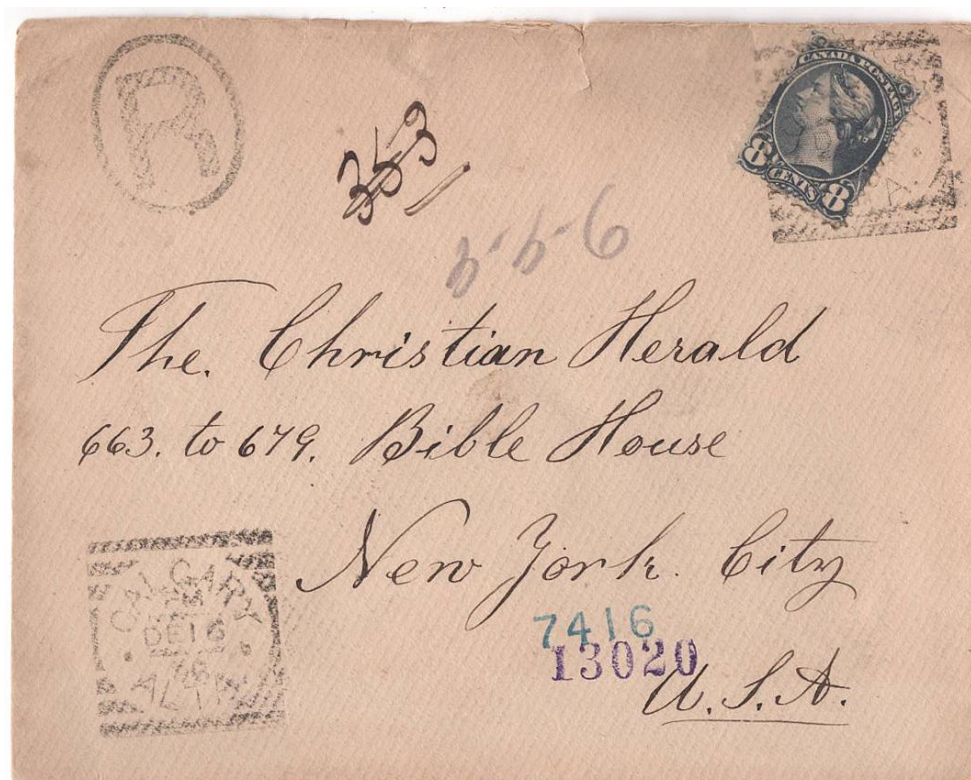 R
353
9-4-4
CANADA POSTAGE
8 CENTS 8
The. Christian Herald
663. to 679. Bible House
New York. City
7416
13020
U.S.A.
CALGARY
PM
DE 16
96
ALTA